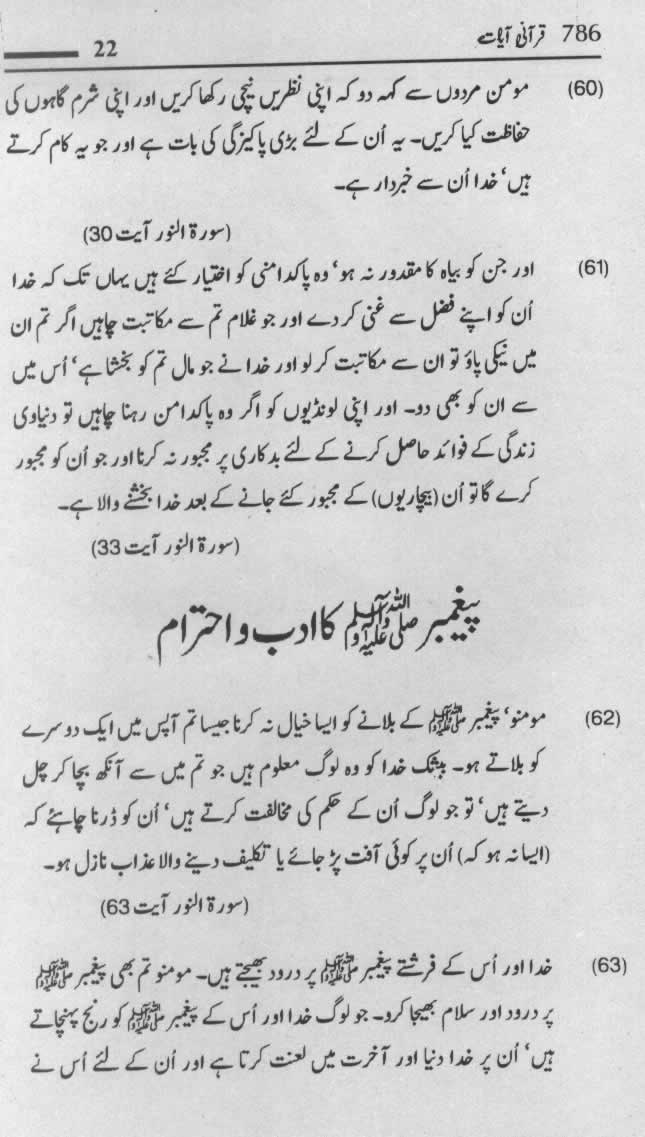 786 قرآنی آیات 22
(60) مومن مردوں سے کہہ دو کہ اپنی نظریں نیچی رکھا کریں اور اپنی شرم گاہوں کی
حفاظت کیا کریں۔ یہ اُن کے لئے بڑی پاکیزگی کی بات ہے اور جو یہ کام کرتے
ہیں‘ خدا اُن سے خبردار ہے۔
(سورۃ النور آیت 30)
(61) اور جن کو بیاہ کا مقدور نہ ہو‘ وہ پاکدامنی کو اختیار کئے ہیں یہاں تک کہ خدا
اُن کو اپنے فضل سے غنی کر دے اور جو غلام تم سے مکاتبت چاہیں اگر تم ان
میں نیکی پاؤ تو ان سے مکاتبت کر لو اور خدا نے جو مال تم کو بخشا ہے‘ اُس میں
سے ان کو بھی دو۔ اور اپنی لونڈیوں کو اگر وہ پاکدامن رہنا چاہیں تو دنیاوی
زندگی کے فوائد حاصل کرنے کے لئے بدکاری پر مجبور نہ کرنا اور جو اُن کو مجبور
کرے گا تو اُن (بیچاریوں) کے مجبور کئے جانے کے بعد خدا بخشنے والا ہے۔
(سورۃ النور آیت 33)
پیغمبر ﷺ کا ادب و احترام
(62) مومنو‘ پیغمبر ﷺ کے بلانے کو ایسا خیال نہ کرنا جیسا تم آپس میں ایک دوسرے
کو بلاتے ہو۔ بیشک خدا کو وہ لوگ معلوم ہیں جو تم میں سے آنکھ بچا کر چل
دیتے ہیں‘ تو جو لوگ اُن کے حکم کی مخالفت کرتے ہیں‘ اُن کو ڈرنا چاہئے کہ
(ایسا نہ ہو کہ) اُن پر کوئی آفت پڑ جائے یا تکلیف دینے والا عذاب نازل ہو۔
(سورۃ النور آیت 63)
(63) خدا اور اُس کے فرشتے پیغمبر ﷺ پر درود بھیجتے ہیں۔ مومنو تم بھی پیغمبر ﷺ
پر درود اور سلام بھیجا کرو۔ جو لوگ خدا اور اُس کے پیغمبر ﷺ کو رنج پہنچاتے
ہیں‘ اُن پر خدا دنیا اور آخرت میں لعنت کرتا ہے اور اُن کے لئے اُس نے